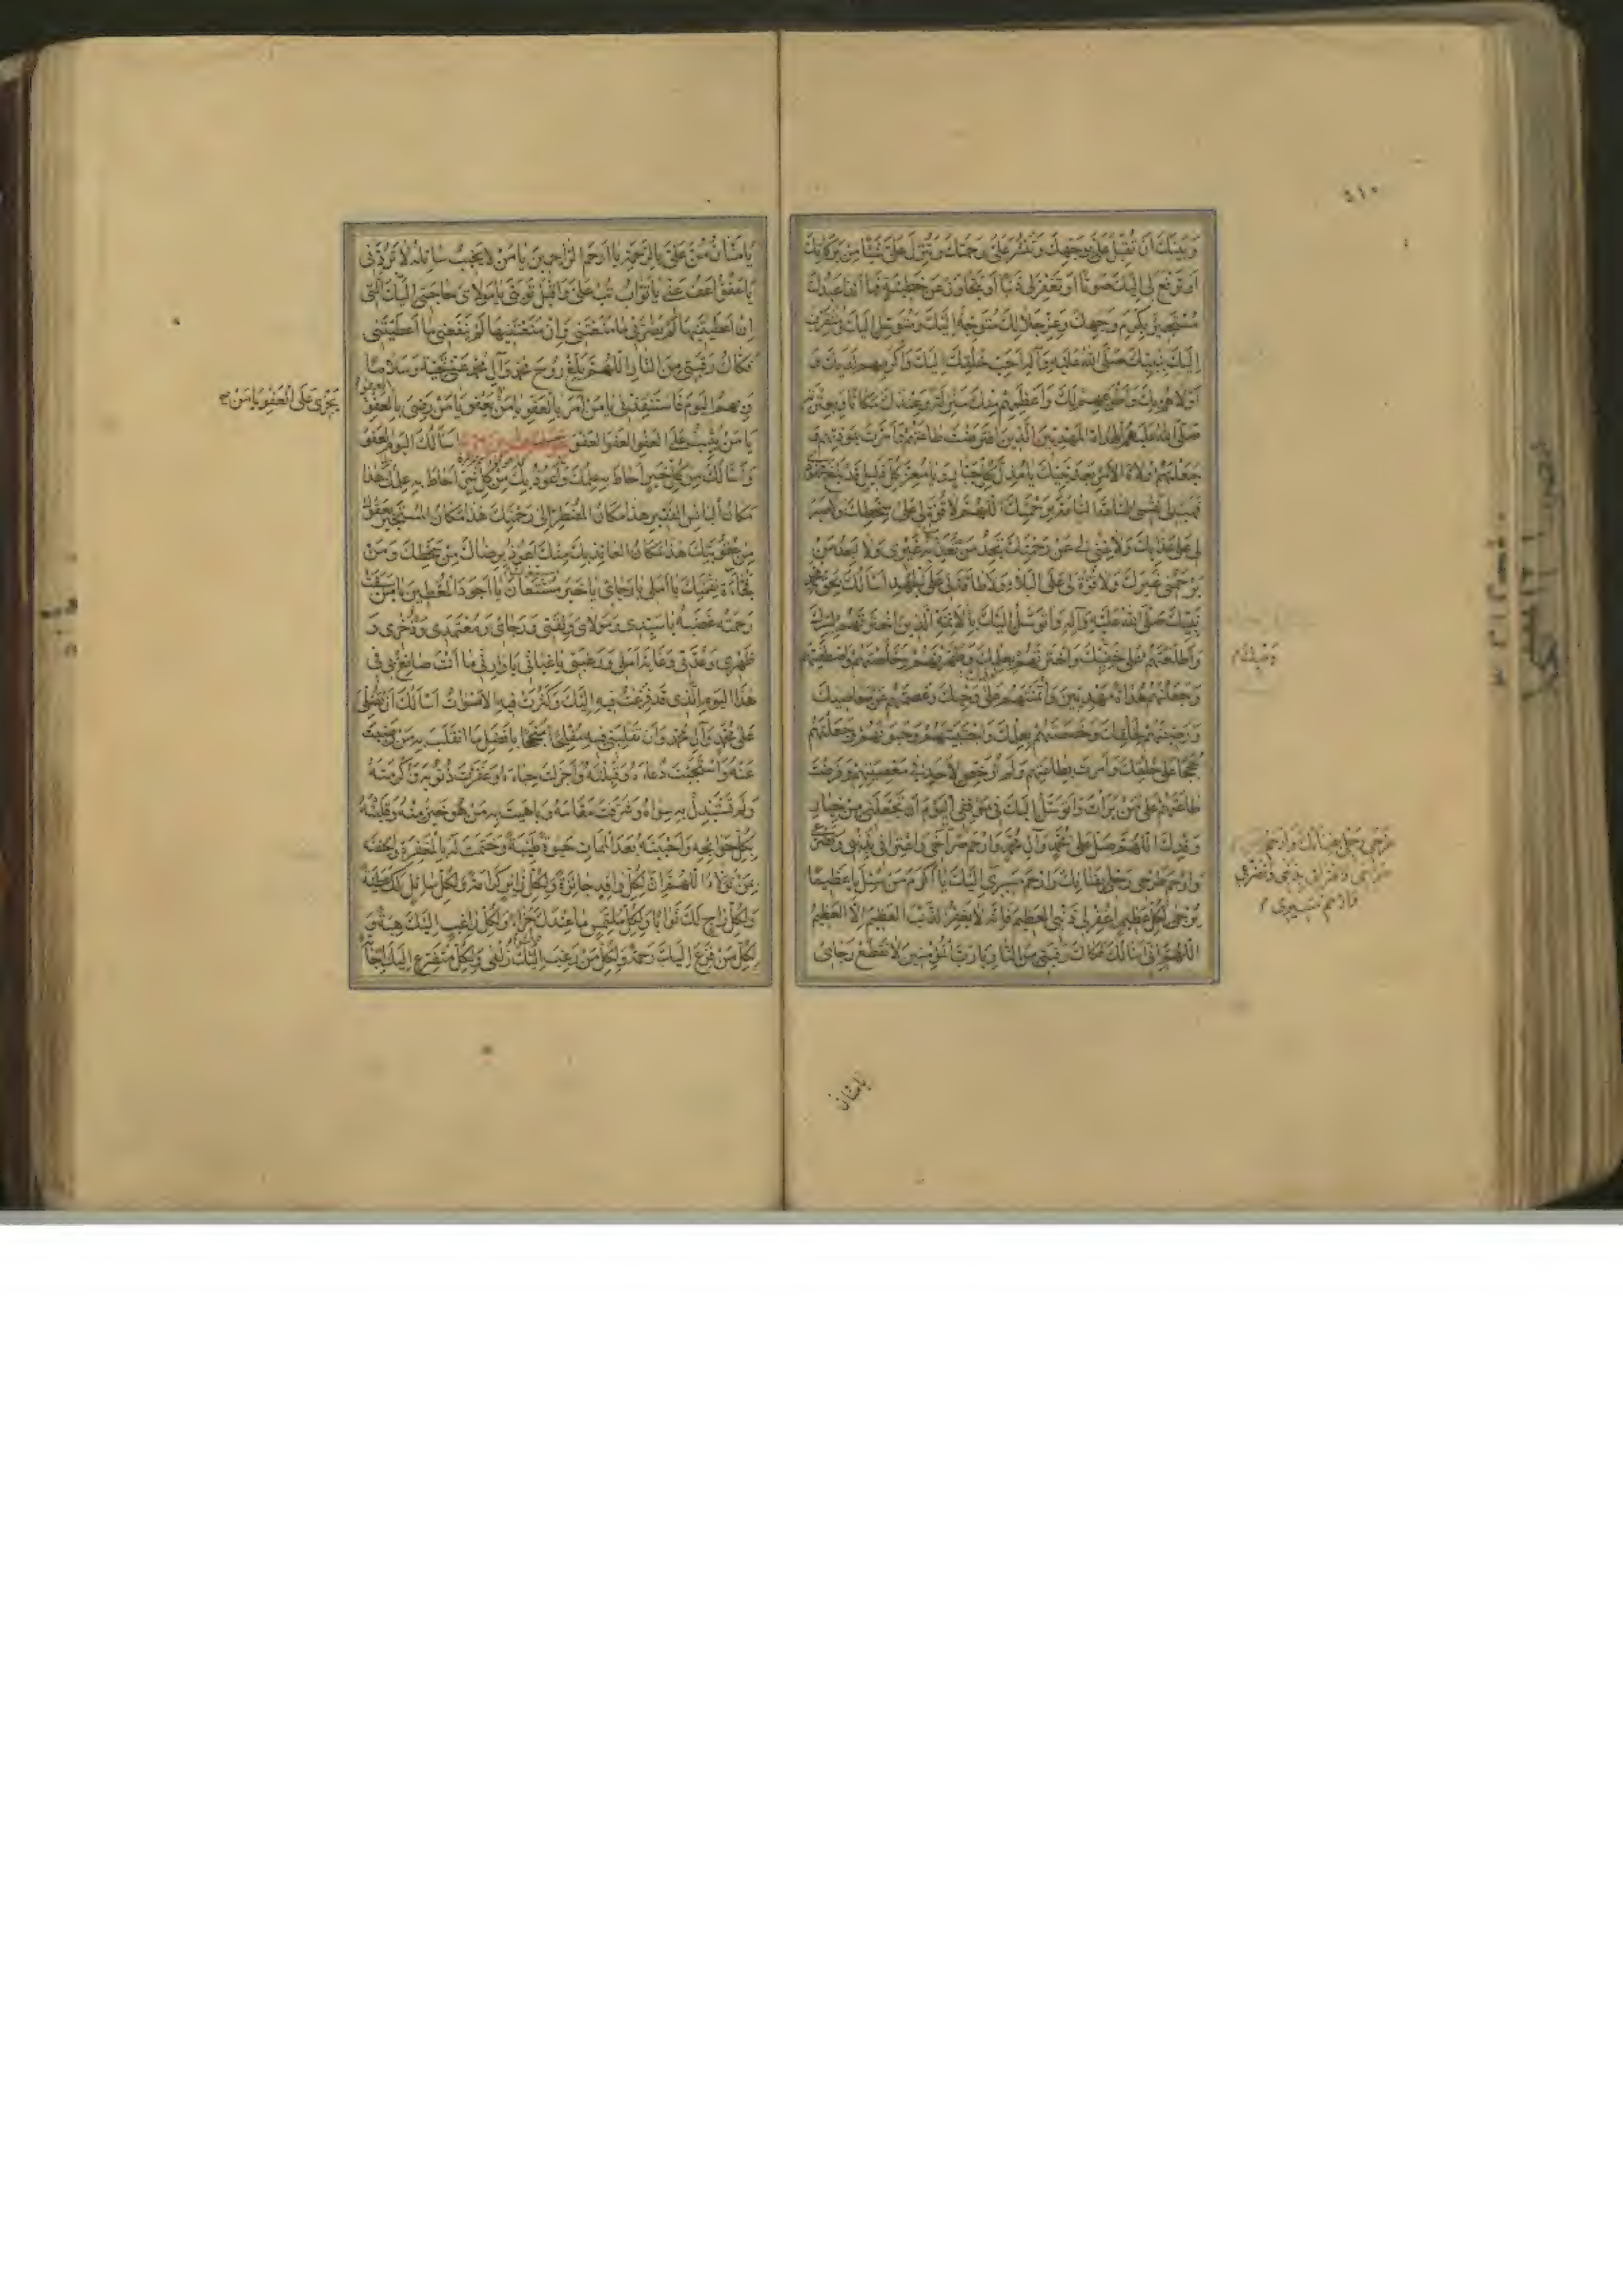 ٥١٠
وَبَيْنَكَ أَنْ تُقْبِلَ عَلَيَّ بِوَجْهِكَ وَتَنْشُرَ عَلَيَّ رَحْمَتَكَ وَتُنْزِلَ عَلَيَّ شَيْئًا مِنْ بَرَكَاتِكَ
أَوْ تَرْفَعَ لِي إِلَيْكَ صَوْتًا أَوْ تَغْفِرَ لِي ذَنْبًا أَوْ تَتَجَاوَزَ عَنْ خَطِيئَةٍ فَهَا أَنَا عَبْدُكَ
مُسْتَجِيرٌ بِكَرَمِ وَجْهِكَ وَعِزِّ جَلَالِكَ مُتَوَجِّهٌ إِلَيْكَ وَمُتَوَسِّلٌ إِلَيْكَ وَمُتَقَرِّبٌ
إِلَيْكَ بِنَبِيِّكَ صَلَّى اللهُ عَلَيْهِ وَآلِهِ أَحَبِّ خَلْقِكَ إِلَيْكَ وَأَكْرَمِهِمْ لَدَيْكَ وَ
أَوْلَاهُمْ بِكَ وَأَطْوَعِهِمْ لَكَ وَأَعْظَمِهِمْ مِنْكَ مَنْزِلَةً وَعِنْدَكَ مَكَانًا وَبِعِتْرَتِهِ
صَلَّى اللهُ عَلَيْهِمُ الْهُدَاةِ الْمَهْدِيِّينَ الَّذِينَ افْتَرَضْتَ طَاعَتَهُمْ وَأَمَرْتَ بِمَوَدَّتِهِمْ وَ
جَعَلْتَهُمْ وُلَاةَ الْأَمْرِ بَعْدَ نَبِيِّكَ يَا مُذِلَّ كُلِّ جَبَّارٍ وَيَا مُعِزَّ كُلِّ ذَلِيلٍ قَدْ بَلَغَ مَجْهُودِي
فَهَبْ لِي نَفْسِيَ السَّاعَةَ السَّاعَةَ بِرَحْمَتِكَ اللّٰهُمَّ لَا قُوَّةَ لِي عَلَى سَخَطِكَ وَلَا صَبْرَ
لِي عَلَى عَذَابِكَ وَلَا غِنَى لِي عَنْ رَحْمَتِكَ تَجِدُ مَنْ تُعَذِّبُ غَيْرِي وَلَا أَجِدُ مَنْ
يَرْحَمُنِي غَيْرَكَ وَلَا قُوَّةَ لِي عَلَى الْبَلَاءِ وَلَا طَاقَةَ لِي عَلَى الْجَهْدِ أَسْأَلُكَ بِحَقِّ مُحَمَّدٍ
نَبِيِّكَ صَلَّى اللهُ عَلَيْهِ وَآلِهِ وَأَتَوَسَّلُ إِلَيْكَ بِالْأَئِمَّةِ الَّذِينَ اخْتَرْتَهُمْ لِسِرِّكَ
وَأَطْلَعْتَهُمْ عَلَى خَفِيِّكَ وَاخْتَرْتَهُمْ بِعِلْمِكَ وَطَهَّرْتَهُمْ وَخَلَّصْتَهُمْ وَاصْطَفَيْتَهُمْ
وَجَعَلْتَهُمْ هُدَاةً مَهْدِيِّينَ وَائْتَمَنْتَهُمْ عَلَى وَحْيِكَ وَعَصَمْتَهُمْ عَنْ مَعَاصِيكَ
وَرَضِيتَهُمْ لِخَلْقِكَ وَخَصَصْتَهُمْ بِعِلْمِكَ وَاجْتَبَيْتَهُمْ وَحَبَوْتَهُمْ وَجَعَلْتَهُمْ
حُجَجًا عَلَى خَلْقِكَ وَأَمَرْتَ بِطَاعَتِهِمْ وَلَمْ تُرَخِّصْ لِأَحَدٍ فِي مَعْصِيَتِهِمْ وَفَرَضْتَ
طَاعَتَهُمْ عَلَى مَنْ بَرَأْتَ وَأَتَوَسَّلُ إِلَيْكَ فِي مَوْقِفِي الْيَوْمَ أَنْ تَجْعَلَنِي مِنْ خِيَارِ
وَفْدِكَ اللّٰهُمَّ صَلِّ عَلَى مُحَمَّدٍ وَآلِ مُحَمَّدٍ وَارْحَمْ صُرَاخِي وَاعْتِرَافِي بِذَنْبِي وَتَضَرُّعِي
وَارْحَمْ طَرْحِي رَحْلِي بِفِنَائِكَ وَارْحَمْ مَسِيرِي إِلَيْكَ يَا أَكْرَمَ مَنْ سُئِلَ يَا عَظِيمًا
يُرْجَى لِكُلِّ عَظِيمٍ اغْفِرْ لِي ذَنْبِيَ الْعَظِيمَ فَإِنَّهُ لَا يَغْفِرُ الذَّنْبَ الْعَظِيمَ إِلَّا الْعَظِيمُ
اللّٰهُمَّ إِنِّي أَسْأَلُكَ فَكَاكَ رَقَبَتِي مِنَ النَّارِ يَا رَبَّ الْمُؤْمِنِينَ لَا تَقْطَعْ رَجَائِي
يا منان
يَا مَنَّانُ مُنَّ عَلَيَّ بِالرَّحْمَةِ يَا أَرْحَمَ الرَّاحِمِينَ يَا مَنْ لَا يَخِيبُ سَائِلُهُ لَا تَرُدَّنِي
يَا عَفُوُّ اعْفُ عَنِّي يَا تَوَّابُ تُبْ عَلَيَّ وَاقْبَلْ تَوْبَتِي يَا مَوْلَايَ حَاجَتِي إِلَيْكَ الَّتِي
إِنْ أَعْطَيْتَنِيهَا لَمْ يَضُرَّنِي مَا مَنَعْتَنِي وَإِنْ مَنَعْتَنِيهَا لَمْ يَنْفَعْنِي مَا أَعْطَيْتَنِي
فَكَاكُ رَقَبَتِي مِنَ النَّارِ اللّٰهُمَّ بَلِّغْ رُوحَ مُحَمَّدٍ وَآلِ مُحَمَّدٍ عَنِّي تَحِيَّةً وَسَلَامًا
وَبِهِمُ الْيَوْمَ فَاسْتَنْقِذْنِي يَا مَنْ أَمَرَ بِالْعَفْوِ يَا مَنْ يَعْفُو يَا مَنْ رَضِيَ بِالْعَفْوِ
يَجْزِي عَلَى الْعَفْوِ يَا مَنْ
يَا مَنْ يُثِيبُ عَلَى الْعَفْوِ الْعَفْوَ الْعَفْوَ أَسْأَلُكَ الْيَوْمَ الْعَفْوَ
وَأَسْأَلُكَ مِنْ كُلِّ خَيْرٍ أَحَاطَ بِهِ عِلْمُكَ وَأَعُوذُ بِكَ مِنْ كُلِّ شَرٍّ أَحَاطَ بِهِ عِلْمُكَ هٰذَا
مَكَانُ الْبَائِسِ الْفَقِيرِ هٰذَا مَكَانُ الْمُضْطَرِّ إِلَى رَحْمَتِكَ هٰذَا مَكَانُ الْمُسْتَجِيرِ بِعَفْوِكَ
مِنْ عُقُوبَتِكَ هٰذَا مَكَانُ الْعَائِذِ بِكَ مِنْكَ أَعُوذُ بِرِضَاكَ مِنْ سَخَطِكَ وَمِنْ
فُجَاءَةِ نِقْمَتِكَ يَا أَمَلِي يَا رَجَائِي يَا خَيْرَ مُسْتَعَانٍ يَا أَجْوَدَ الْمُعْطِينَ يَا مَنْ سَبَقَتْ
رَحْمَتُهُ غَضَبَهُ يَا سَيِّدِي وَمَوْلَايَ وَثِقَتِي وَرَجَائِي وَمُعْتَمَدِي وَذُخْرِي وَ
ظَهْرِي وَعُدَّتِي وَغَايَةَ أَمَلِي وَرَغْبَتِي يَا غِيَاثِي يَا وَارِثِي مَا أَنْتَ صَانِعٌ بِي فِي
هٰذَا الْيَوْمِ الَّذِي قَدْ فَزِعْتُ فِيهِ إِلَيْكَ وَكَثُرَتْ فِيهِ الْأَصْوَاتُ أَسْأَلُكَ أَنْ تُصَلِّيَ
عَلَى مُحَمَّدٍ وَآلِ مُحَمَّدٍ وَأَنْ تَقْلِبَنِي فِيهِ مُفْلِحًا مُنْجِحًا بِأَفْضَلِ مَا انْقَلَبَ بِهِ مَنْ رَضِيتَ
عَنْهُ وَاسْتَجَبْتَ دُعَاءَهُ وَقَبِلْتَهُ وَأَجْزَلْتَ حِبَاءَهُ وَغَفَرْتَ ذُنُوبَهُ وَأَكْرَمْتَهُ
وَلَمْ تَسْتَبْدِلْ بِهِ سِوَاهُ وَشَرَّفْتَ مَقَامَهُ وَبَاهَيْتَ بِهِ مَنْ هُوَ خَيْرٌ مِنْهُ وَقَلَبْتَهُ
بِكُلِّ حَوَائِجِهِ وَأَحْيَيْتَهُ بَعْدَ الْمَمَاتِ حَيٰوةً طَيِّبَةً وَخَتَمْتَ لَهُ بِالْمَغْفِرَةِ وَأَلْحَقْتَهُ
بِمَنْ تَوَلَّاهُ اللّٰهُمَّ إِنَّ لِكُلِّ وَافِدٍ جَائِزَةً وَلِكُلِّ زَائِرٍ كَرَامَةً وَلِكُلِّ سَائِلٍ لَكَ عَطِيَّةً
وَلِكُلِّ رَاجٍ لَكَ ثَوَابًا وَلِكُلِّ مُلْتَمِسٍ مَا عِنْدَكَ جَزَاءً وَلِكُلِّ رَاغِبٍ إِلَيْكَ هِبَةً وَ
لِكُلِّ مَنْ فَزِعَ إِلَيْكَ رَحْمَةً وَلِكُلِّ مَنْ رَغِبَ إِلَيْكَ زُلْفَى وَلِكُلِّ مُتَضَرِّعٍ إِلَيْكَ إِجَابَةً